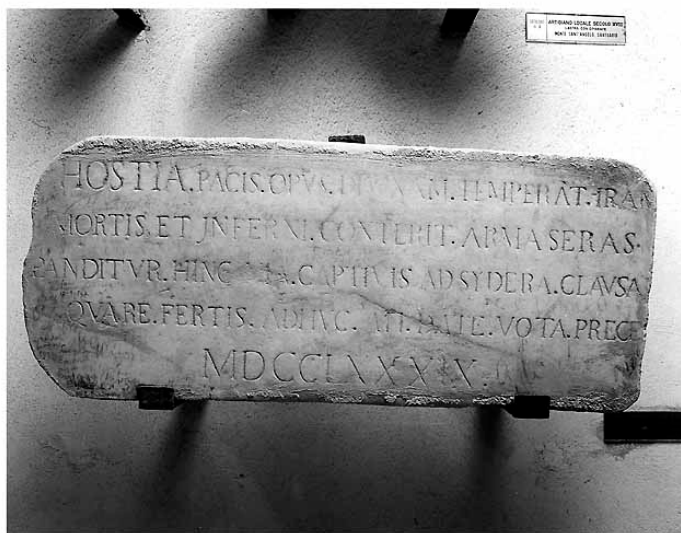 ARTIGIANO LOCALE SECOLO XVIII
LASTRA CON EPIGRAFE
MONTE SANT'ANGELO, SANTUARIO
HOSTIA.PACIS.OPVS. TEMPERAT.IRAM
MORTIS.ET JNFERNI.CONTERIT.ARMA SERAS.
PANDITVR.HINC CAPTIVIS AD SYDERA.CLAVSA
QVARE.FERTIS.ADHVC. VOTA.PRECES
MDCCLXXXIX.